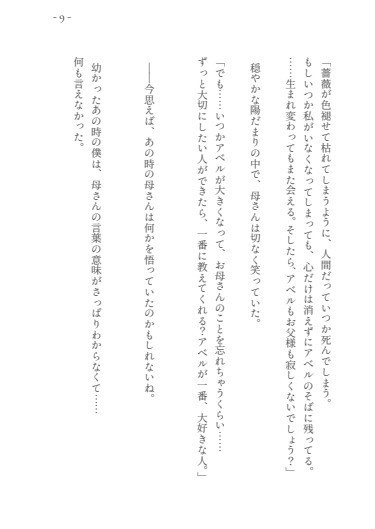 - 9 -
「薔薇が色褪せて枯れてしまうように、人間だっていつか死んでしまう。
もしいつか私がいなくなってしまっても、心だけは消えずにアベルのそばに残ってる。
……生まれ変わってもまた会える。そしたら、アベルもお父様も寂しくないでしょう？」
穏やかな陽だまりの中で、母さんは切なく笑っていた。
「でも……いつかアベルが大きくなって、お母さんのことを忘れちゃうくらい……
ずっと大切にしたい人ができたら、一番に教えてくれる？アベルが一番、大好きな人。」
――今思えば、あの時の母さんは何かを悟っていたのかもしれないね。
幼かったあの時の僕は、母さんの言葉の意味がさっぱりわからなくて……
何も言えなかった。